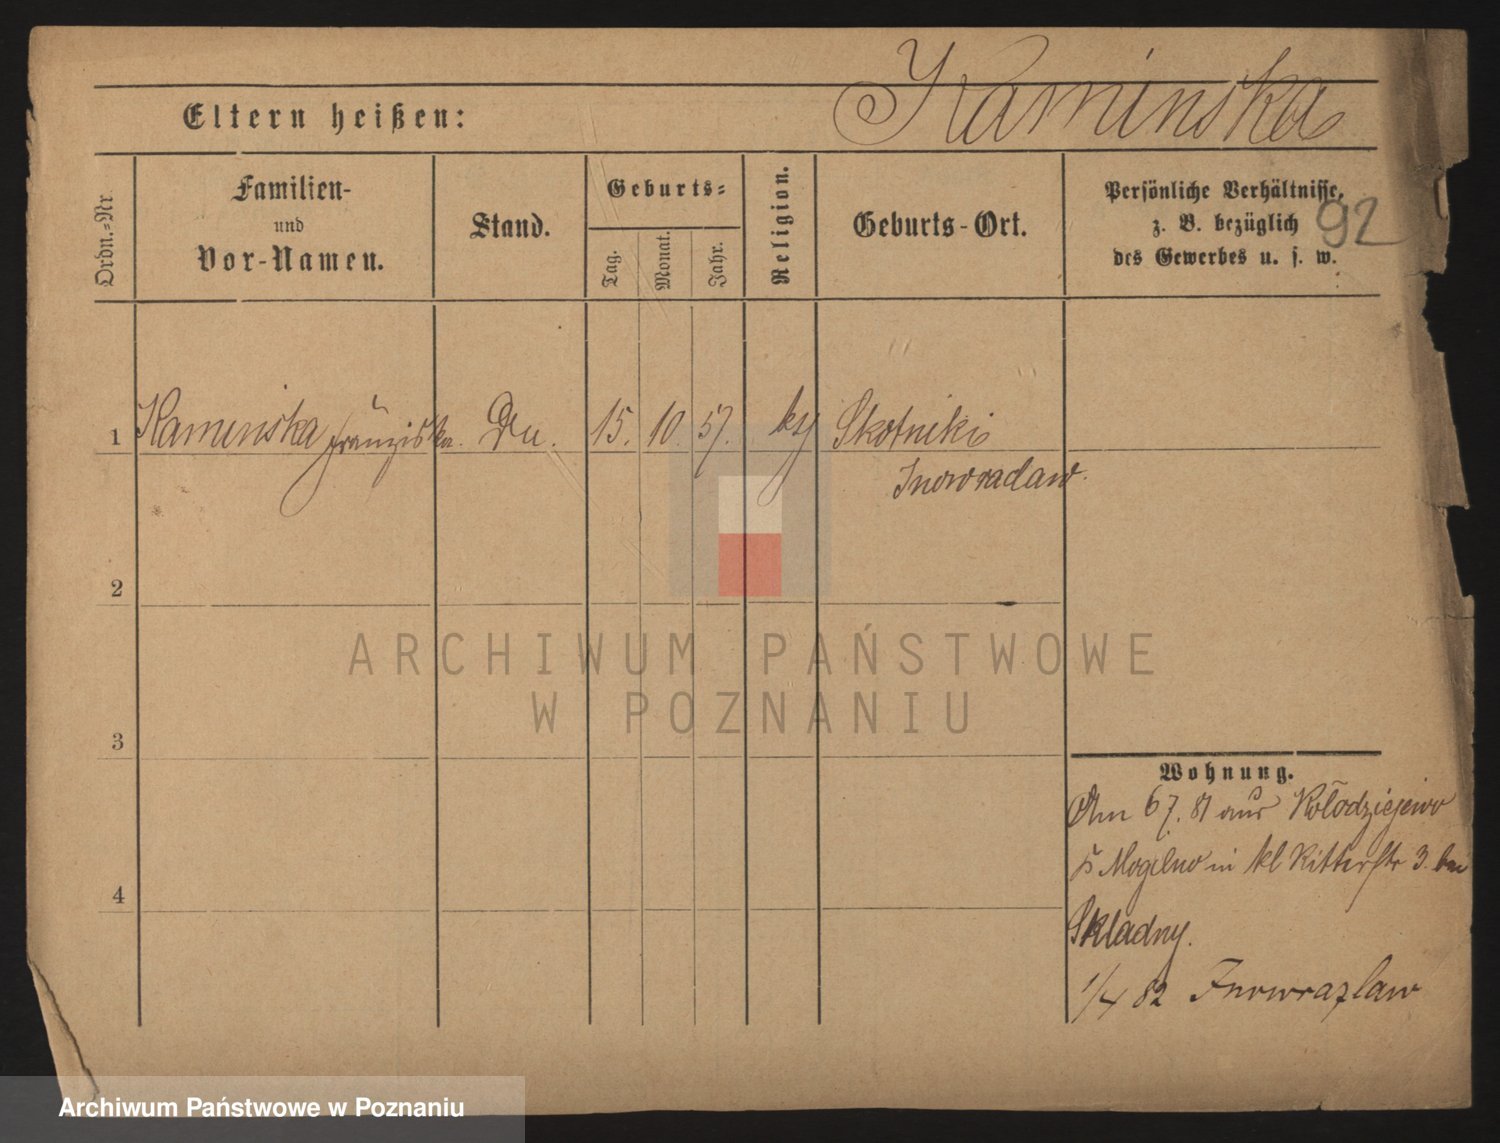 Kaminska
Eltern heißen:
Ordn.=Nr
Familien-
und
Vor-Namen.
Stand.
Geburts=
Tag.
Monat.
Jahr.
Religion.
Geburts-Ort.
Persönliche Verhältnisse,
z. B. bezüglich
des Gewerbes u. s. w.
92
1 Kaminska Franziska. 15. 10. 57. Skotniki
Inowraclaw.
2
3
4
Wohnung.
Am 6 7. 81 aus Kołodziejewo
Mogilno in kl Ritterstr 3. bei
Skladny.
1/4 82 Inowrazlaw
ARCHIWUM PAŃSTWOWE
W POZNANIU
Archiwum Państwowe w Poznaniu